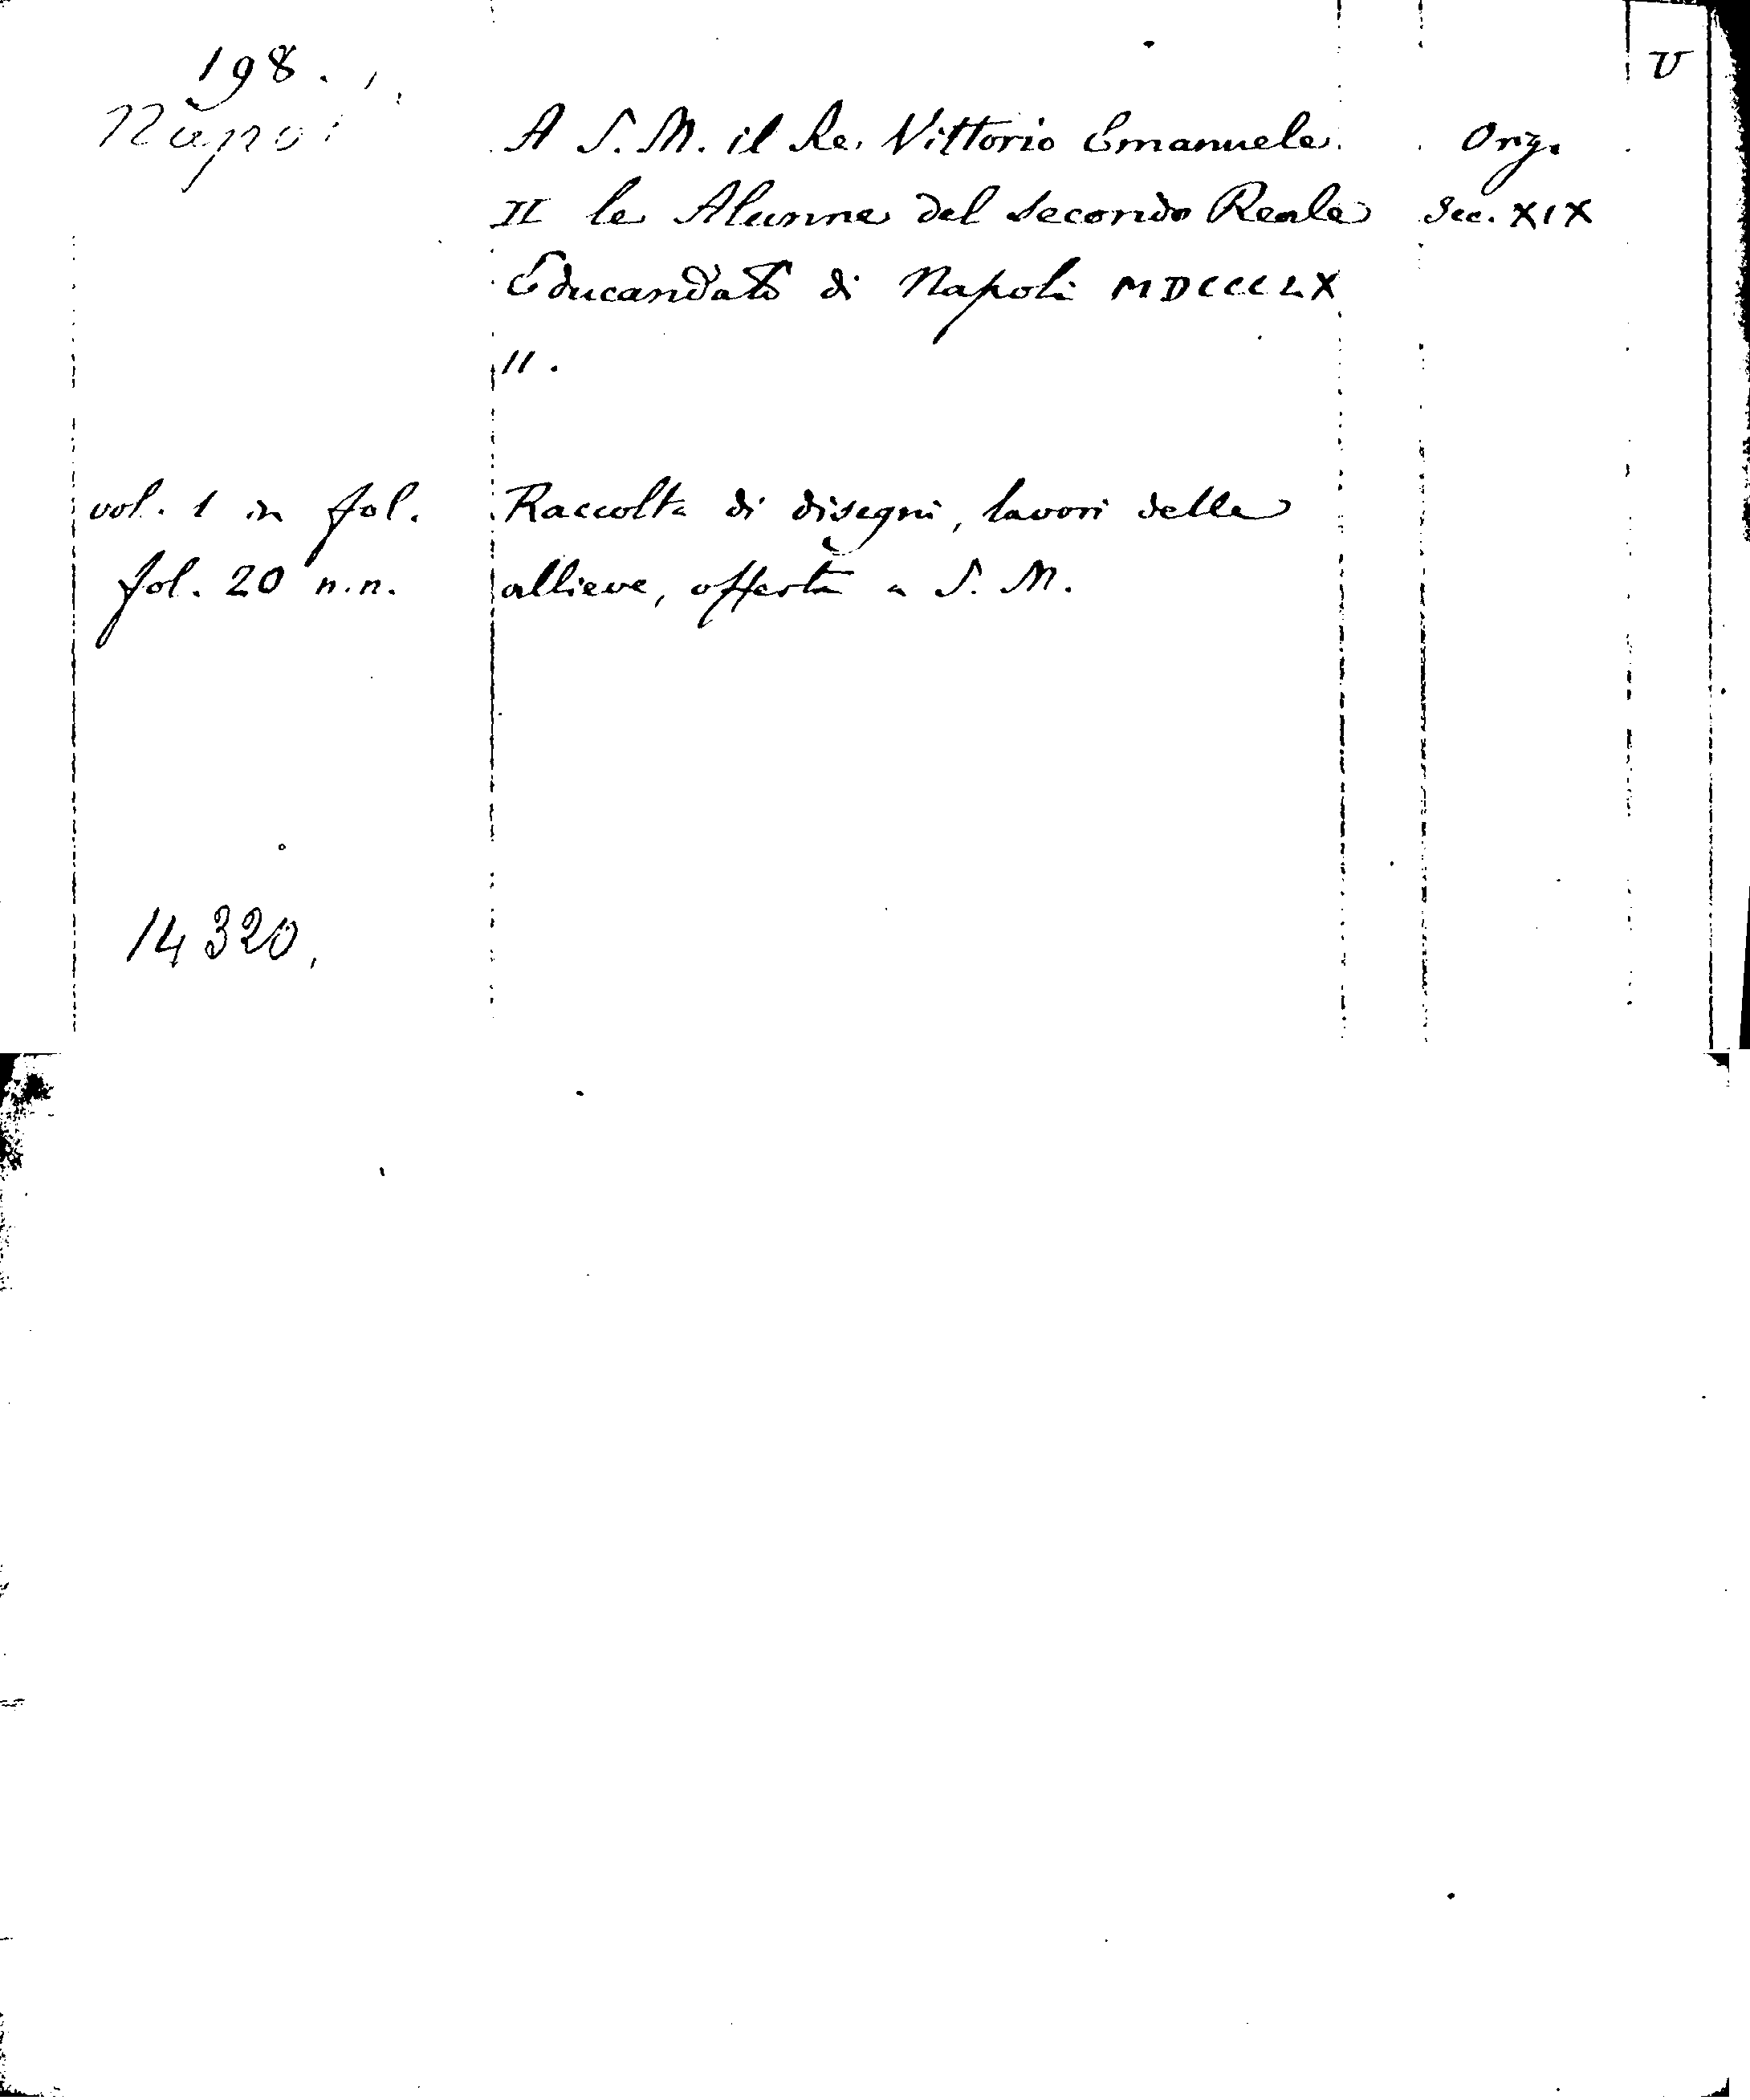 198.
V
Napoli
A S. M. il Re Vittorio Emanuele
Orig.
II le Alunne del secondo Reale
Sec. XIX
Educandato di Napoli MDCCCLX
II.
vol. 1 in fol.
Raccolta di disegni, lavori delle
fol. 20 n.n.
allieve, offerta a S. M.
14320.